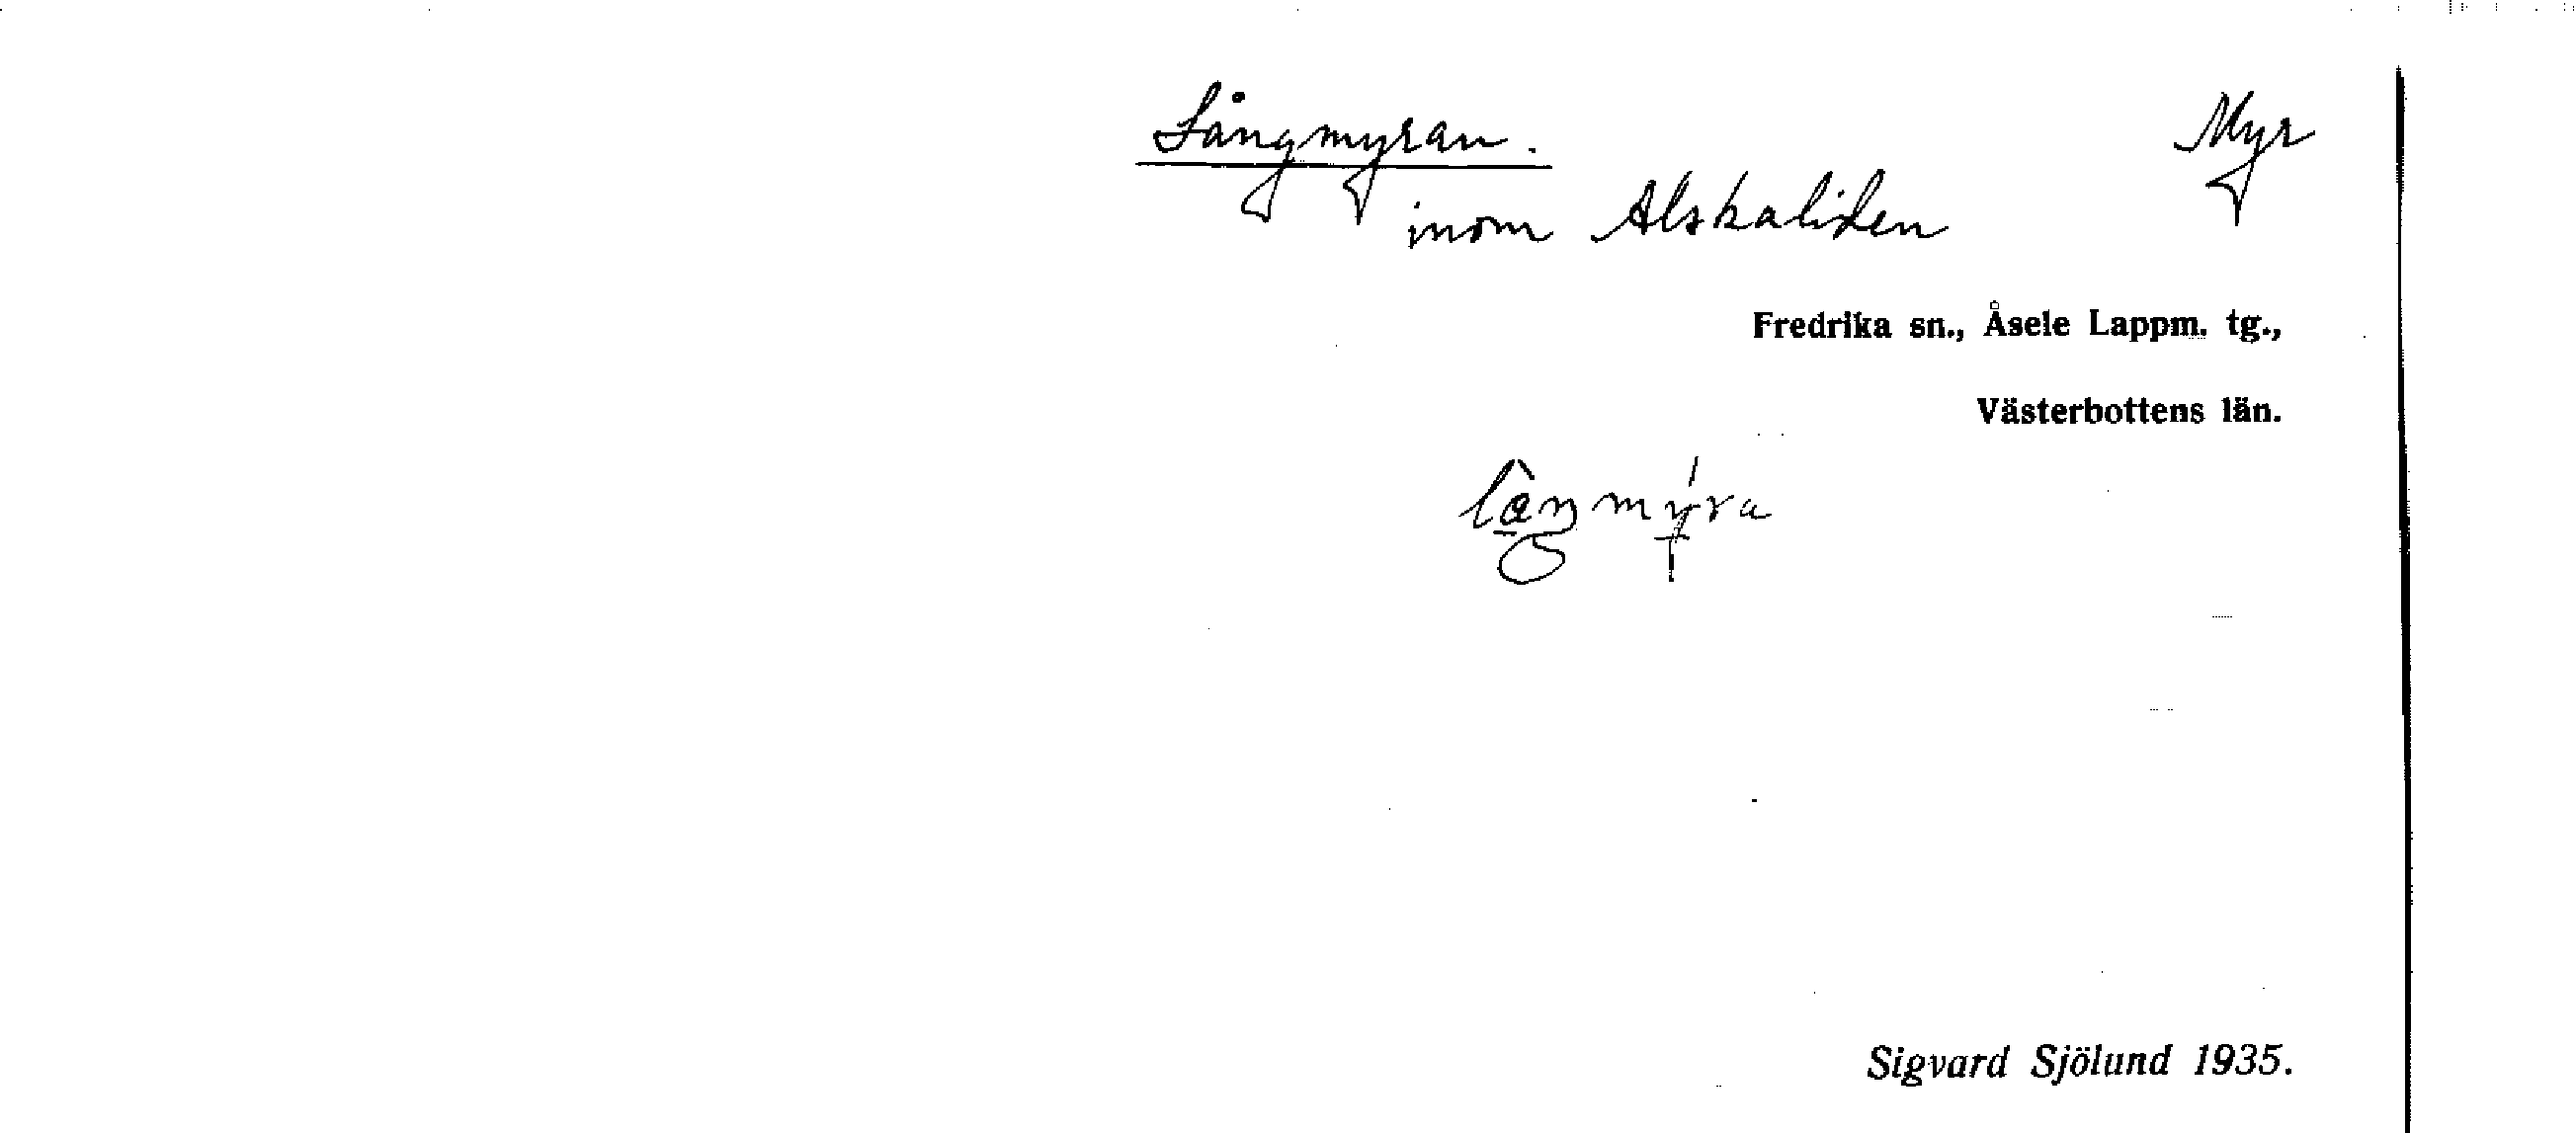 Långmyran. Myr
inom Alskaliden
Fredrika sn., Åsele Lappm. tg.,
Västerbottens län.
Sigvard Sjölund 1935.